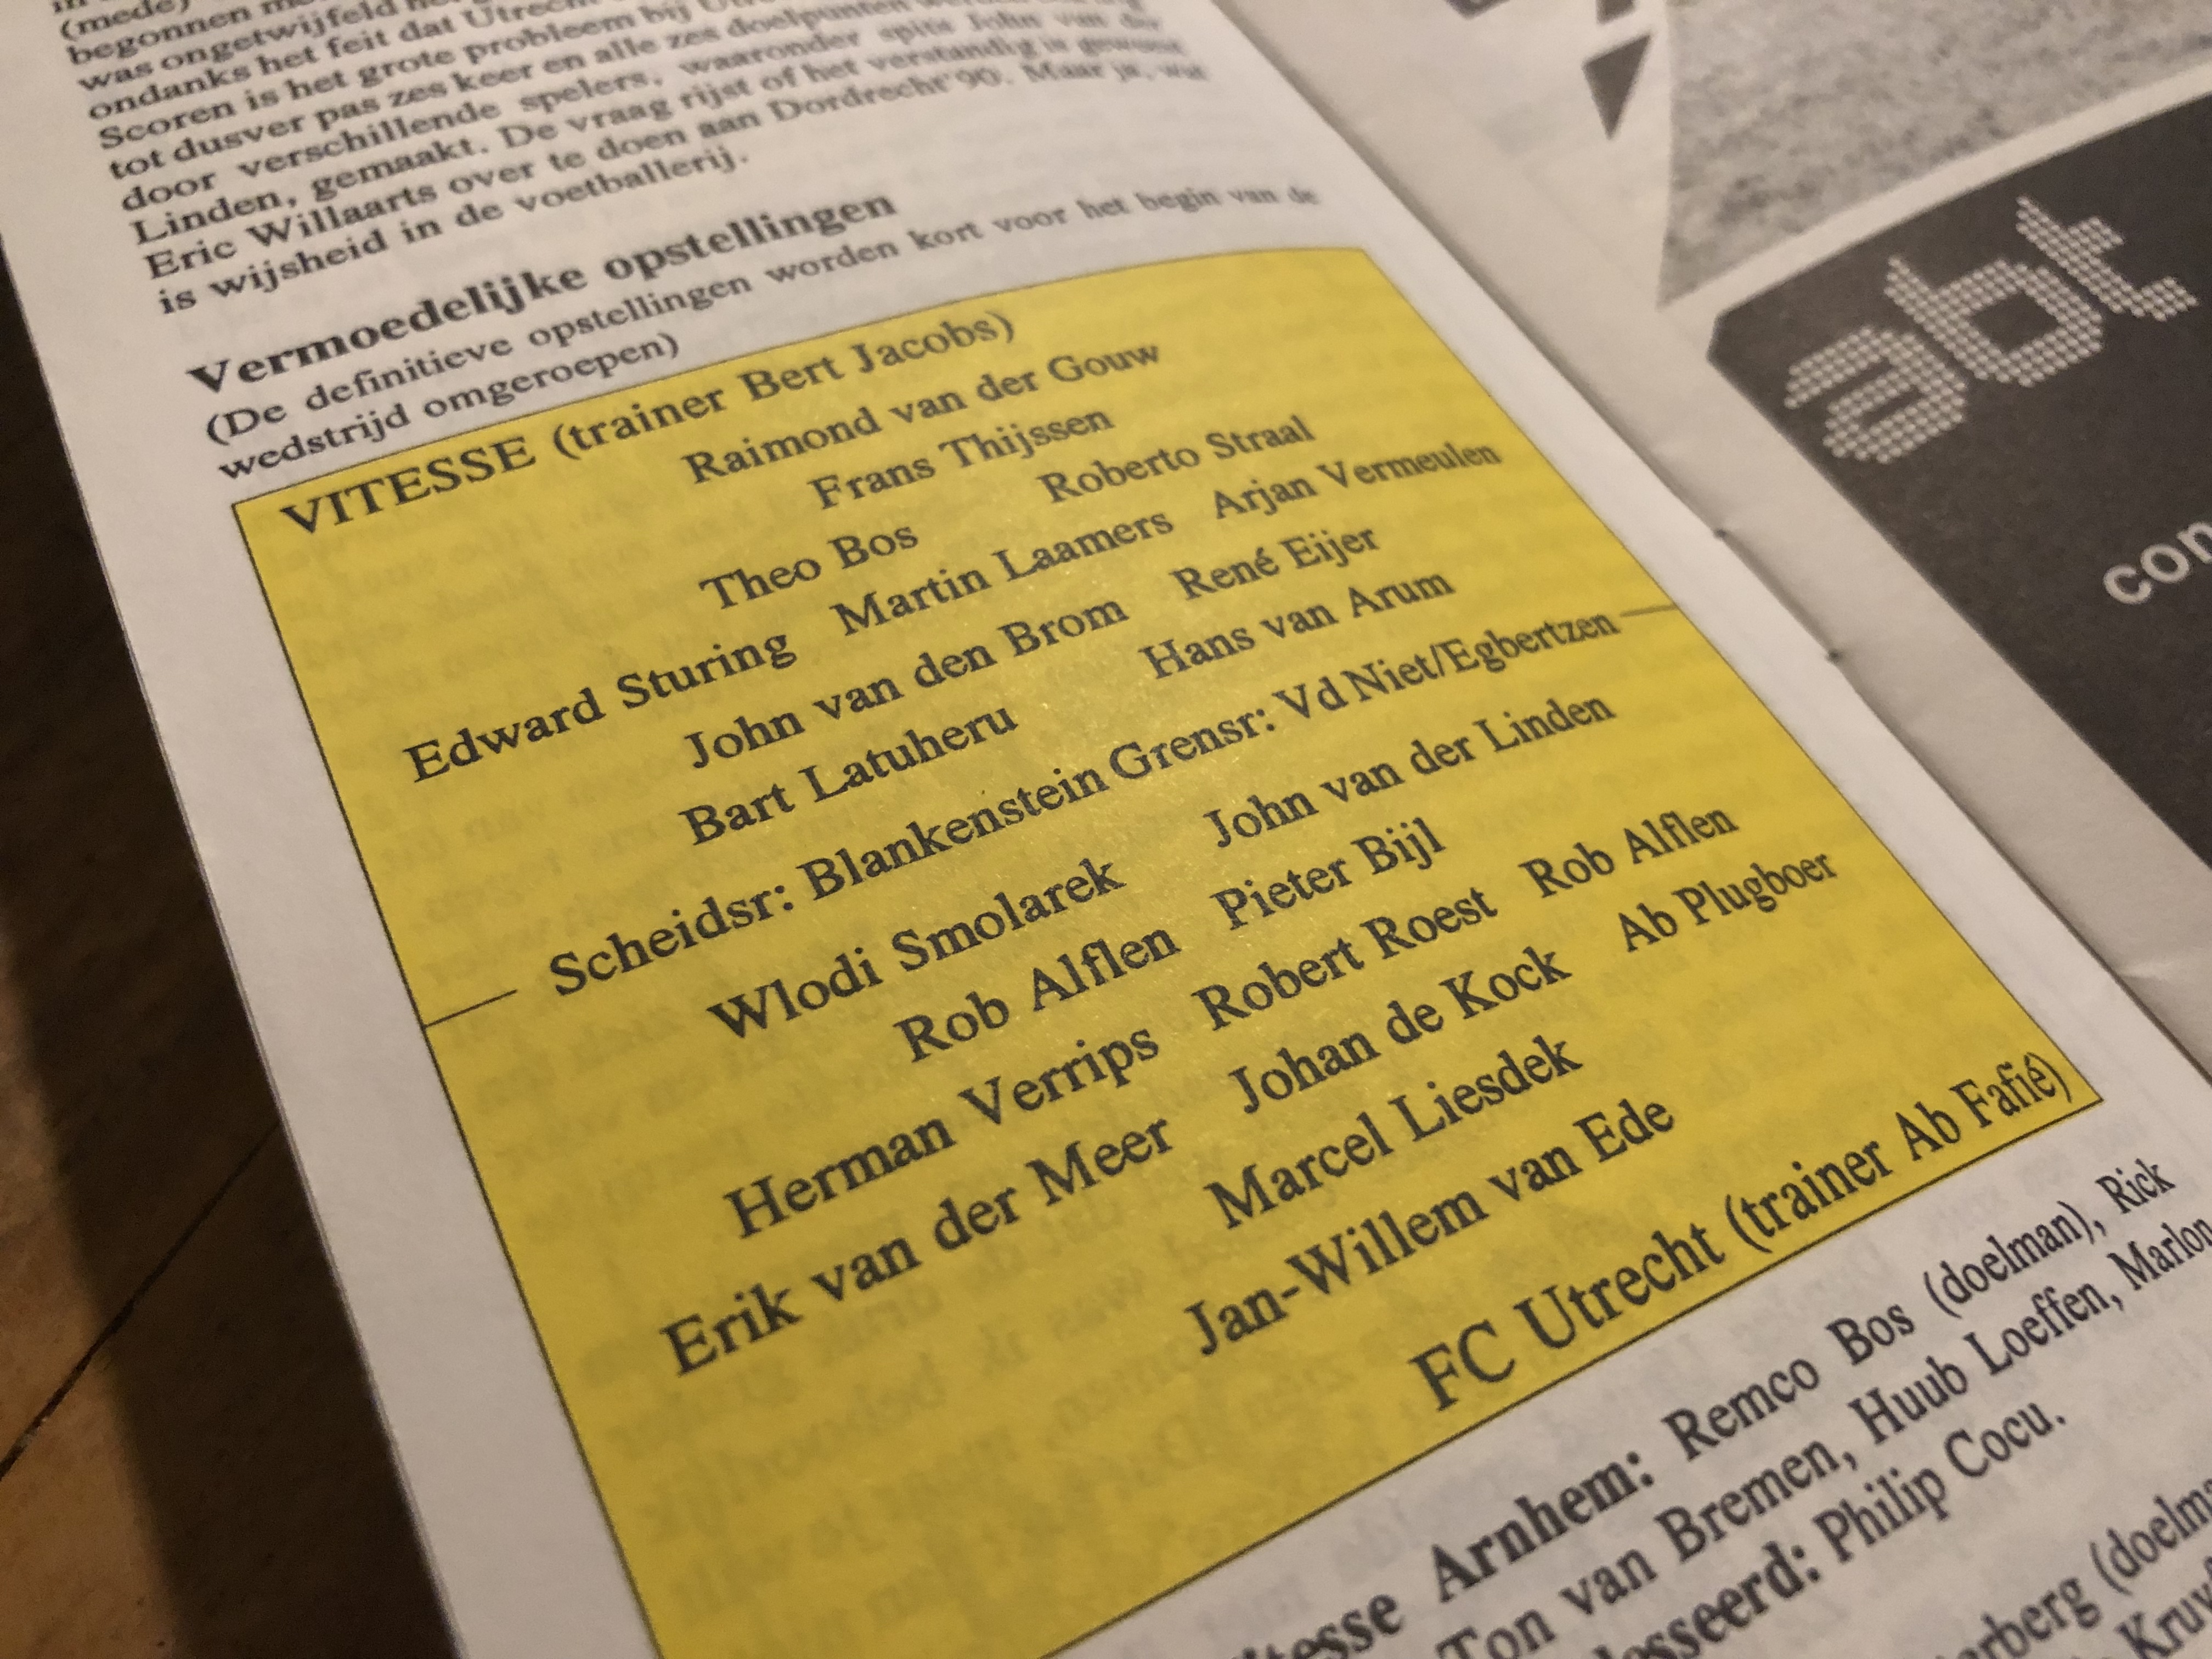 (mede)
begonnen
was ongetwijfeld
ondanks het feit dat Utrecht
Scoren is het grote probleem bij
tot dusver pas zes keer en alle zes doelpunten
door verschillende spelers, waaronder spits John van der
Linden, gemaakt. De vraag rijst of het verstandig is geweest
Eric Willaarts over te doen aan Dordrecht'90. Maar ja, wat
is wijsheid in de voetballerij.
Vermoedelijke opstellingen
(De definitieve opstellingen worden kort voor het begin van de
wedstrijd omgeroepen)
VITESSE (trainer Bert Jacobs)
Raimond van der Gouw
Frans Thijssen
Theo Bos Roberto Straal
Edward Sturing Martin Laamers Arjan Vermeulen
John van den Brom René Eijer
Bart Latuheru Hans van Arum
Scheidsr: Blankenstein Grensr: Vd Niet/Egbertzen
Wlodi Smolarek John van der Linden
Rob Alflen Pieter Bijl
Herman Verrips Robert Roest Rob Alflen
Erik van der Meer Johan de Kock Ab Plugboer
Marcel Liesdek
Jan-Willem van Ede
FC Utrecht (trainer Ab Fafié)
Arnhem: Remco Bos (doelman), Rick
Ton van Bremen, Huub Loeffen, Marlon
Philip Cocu.
abt
con